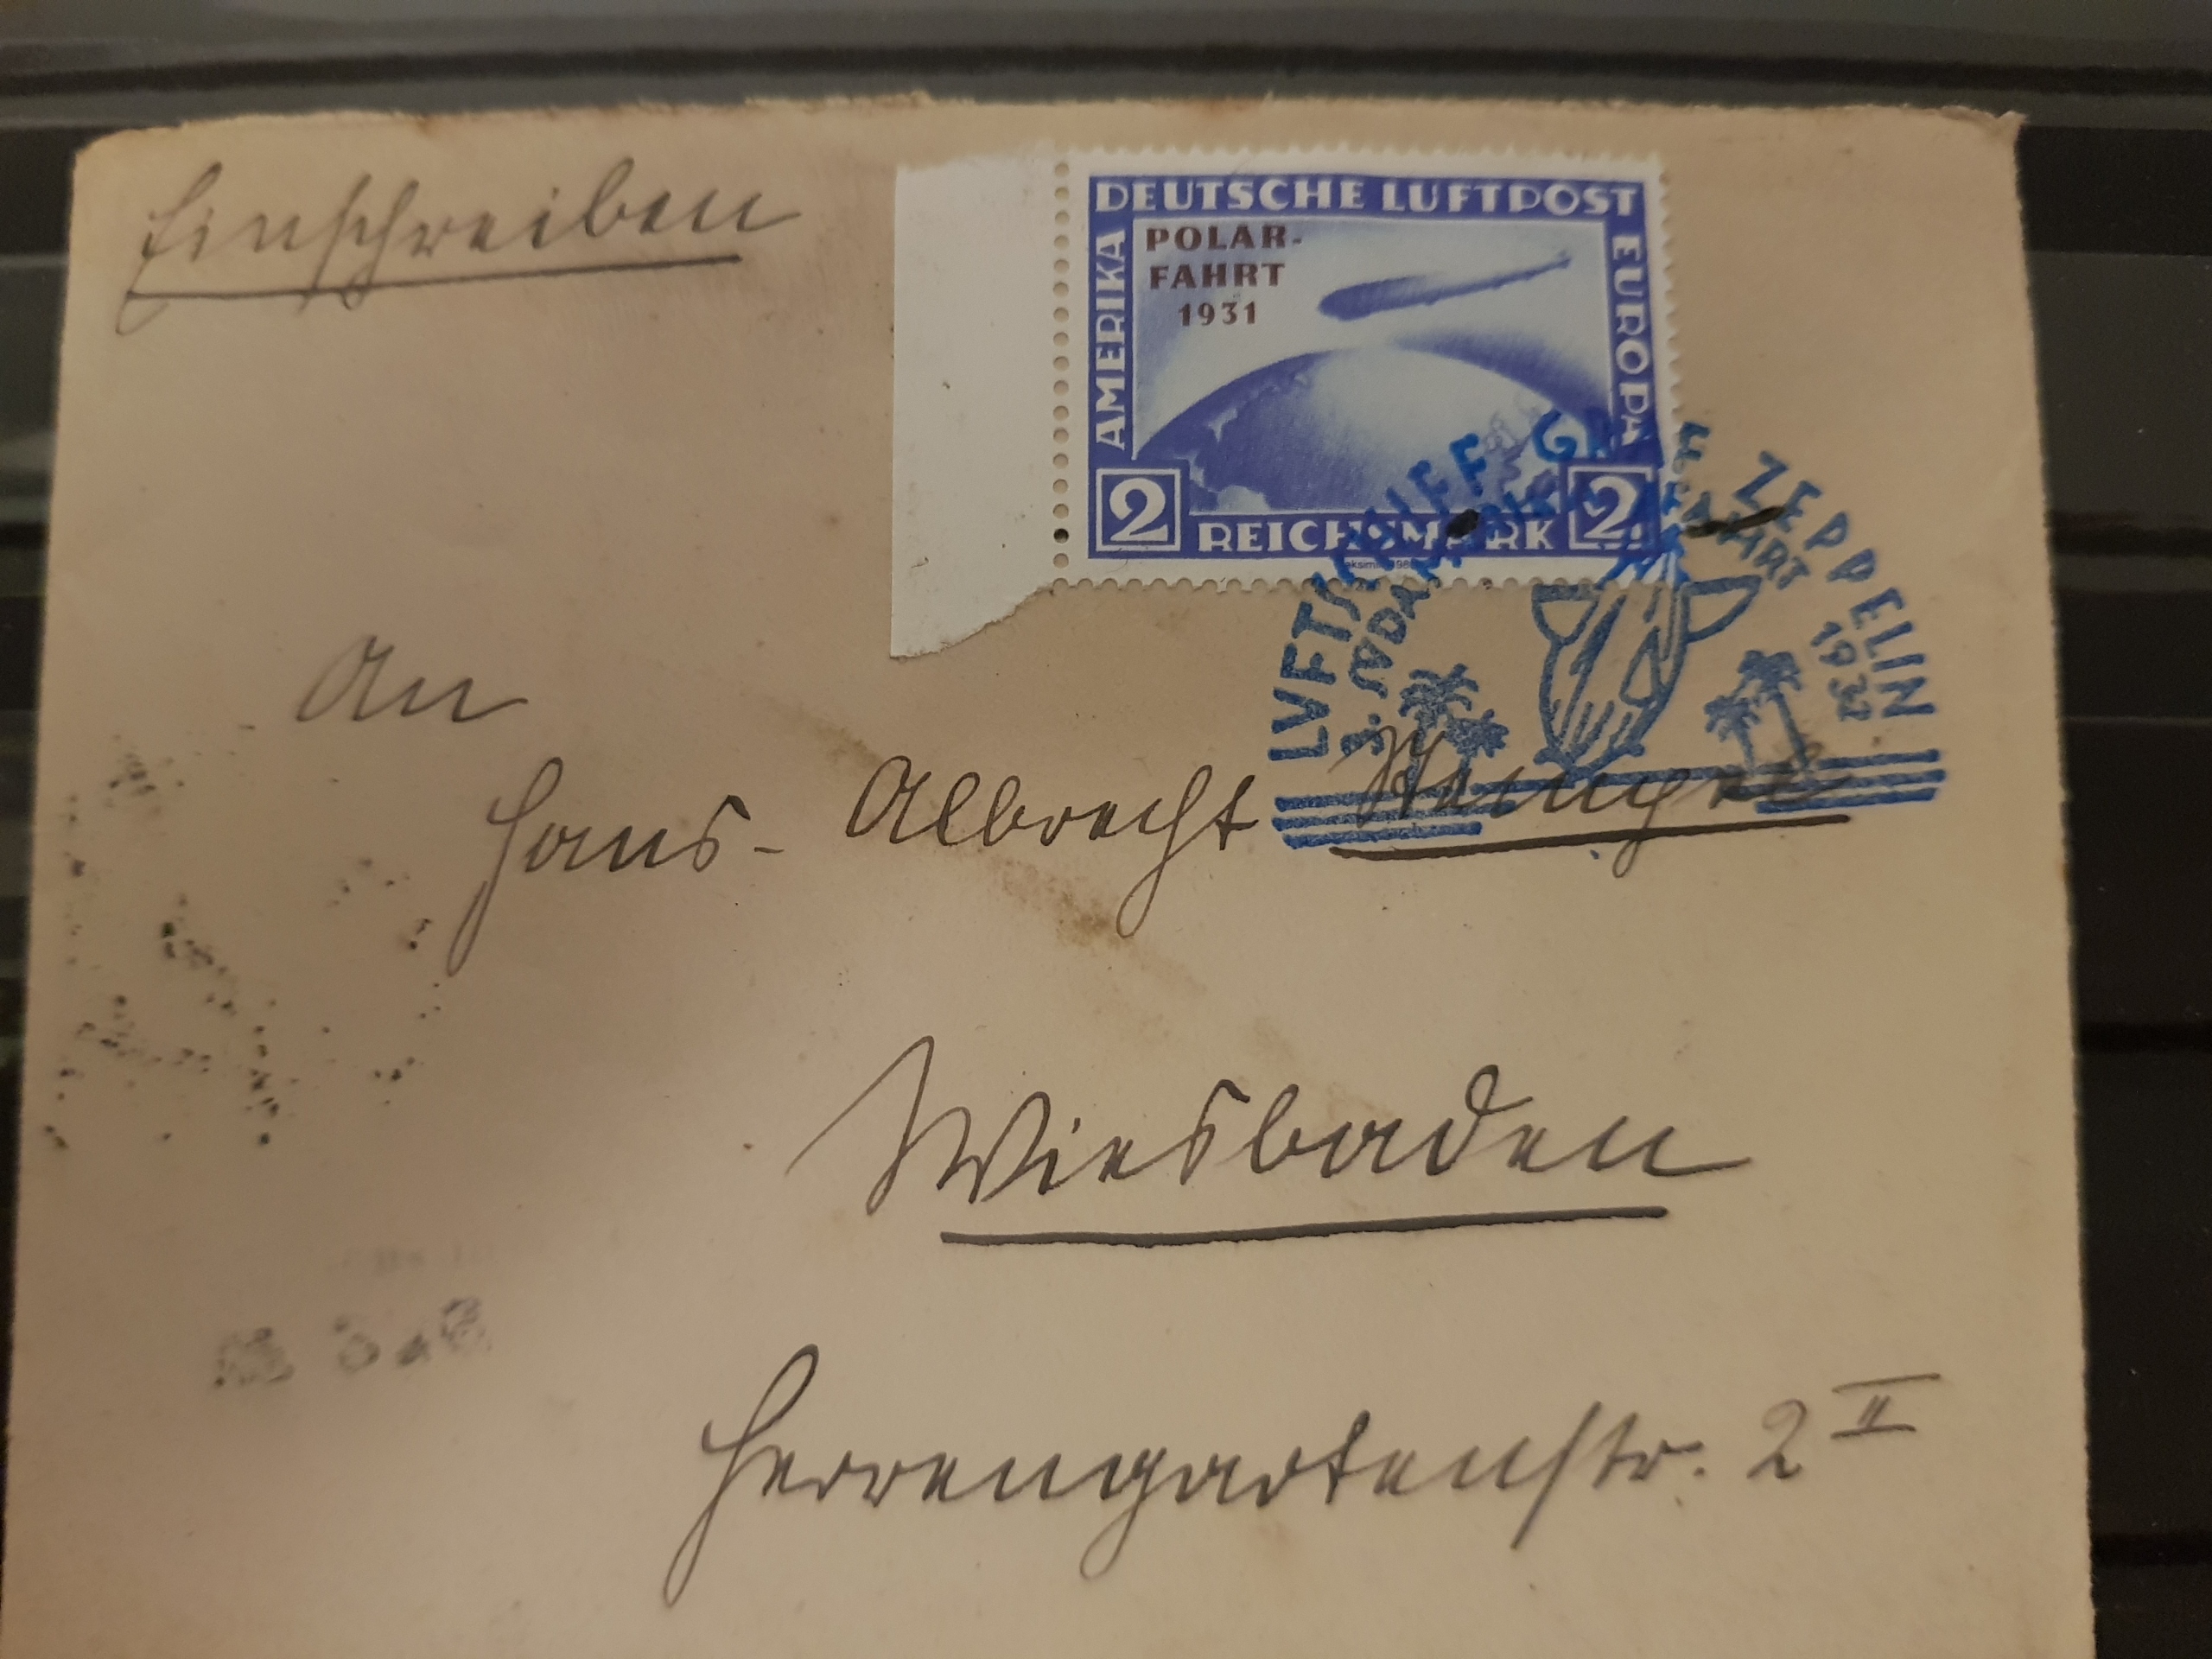 Einschreiben
DEUTSCHE LUFTPOST
AMERIKA
EUROPA
POLAR-
FAHRT
1931
2 REICHSMARK 2
LVFTSCHIFF GRAF ZEPPELIN
SVDAMERIKA FAHRT 1932
An
Hans-Albrecht
Wiesbaden
Herrengartenstr. 2 II